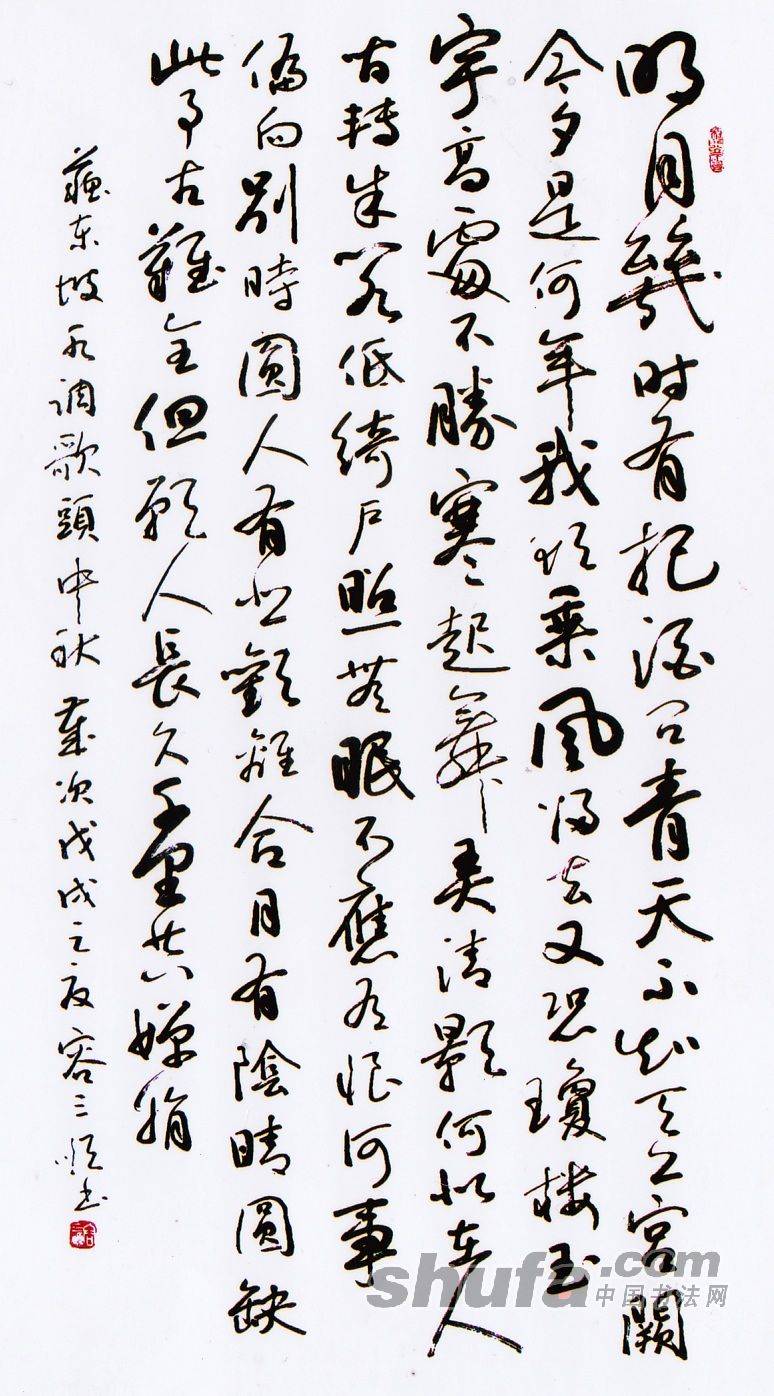 明月幾时有把酒问青天不知天上宮闕
今夕是何年我欲乘風歸去又恐瓊樓玉
宇高處不勝寒起舞弄清影何似在人
間轉朱閣低綺户照無眠不應有恨何事
偏向別時圓人有悲歡離合月有陰晴圓缺
此事古難全但願人長久千里共嬋娟
蘇東坡水调歌頭中秋 歲次戊戌之夏容三順书
shufa.com
中国书法网